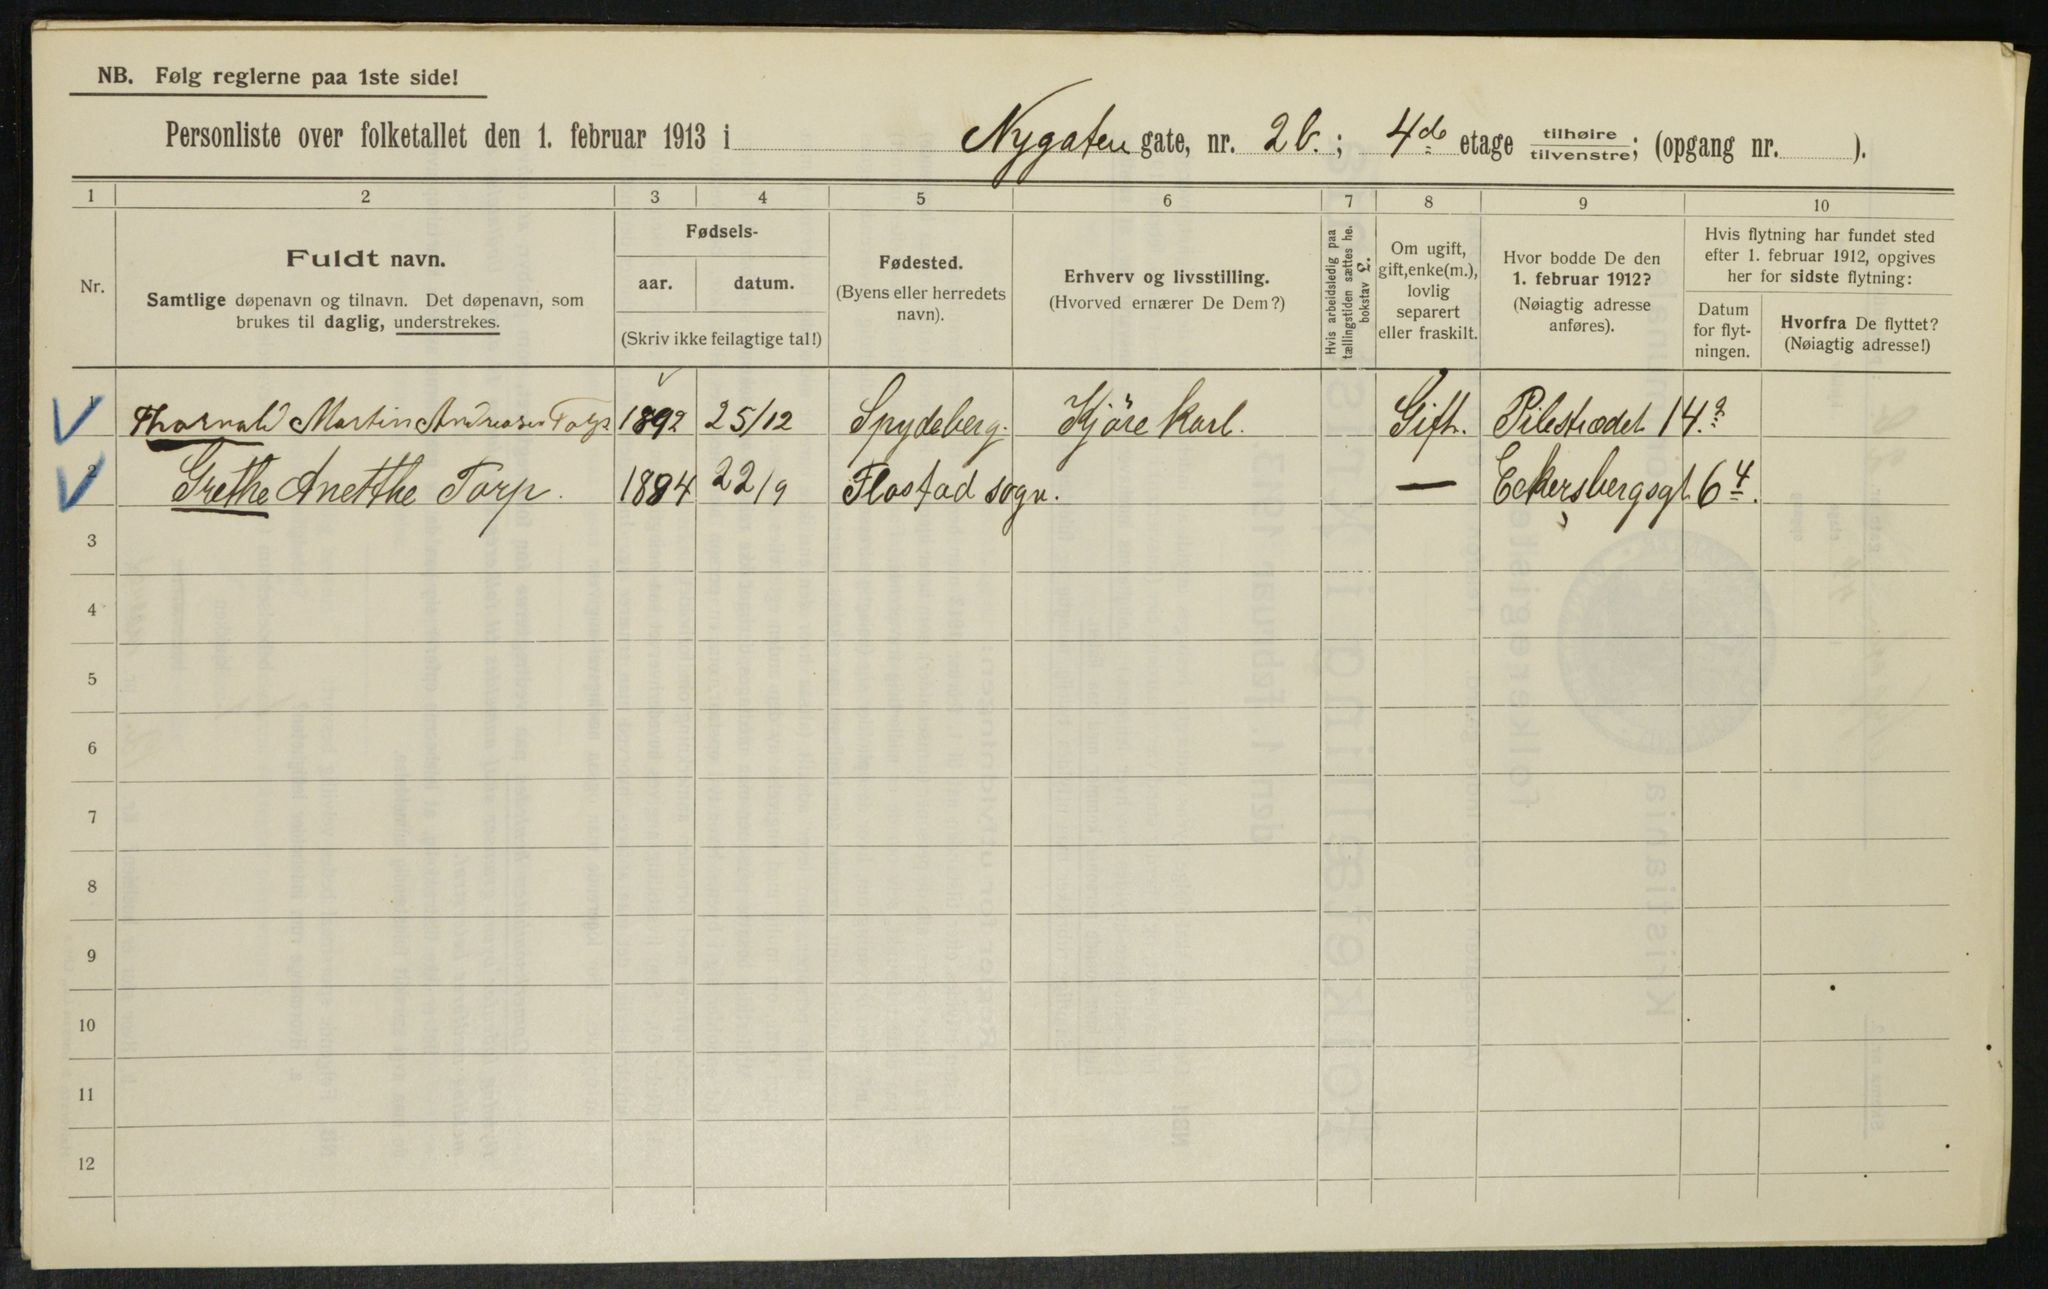 NB. Følg reglerne paa 1ste side!
Personliste over folketallet den 1. februar 1913 i Nygaten gate, nr. 2b.; 4de etage tilhøire/tilvenstre; (opgang nr. ).
1 2 3 4 5 6 7 8 9 10
Nr.
Fuldt navn.
Samtlige døpenavn og tilnavn. Det døpenavn, som
brukes til daglig, understrekes.
Fødsels-
aar. datum.
(Skriv ikke feilagtige tal!)
Fødested.
(Byens eller herredets
navn).
Erhverv og livsstilling.
(Hvorved ernærer De Dem?)
Hvis arbeidsledig paa
tællingstiden sættes he.
bokstav
Om ugift,
gift, enke(m.),
lovlig
separert
eller fraskilt.
Hvor bodde De den
1. februar 1912?
(Nøiagtig adresse
anføres).
Hvis flytning har fundet sted
efter 1. februar 1912, opgives
her for sidste flytning:
Datum
for flyt-
ningen.
Hvorfra De flyttet?
(Nøiagtig adresse!)
1 Thorvald Martin Andreasen Torp 1892 25/12 Spydeberg. Kjörekarl. Gift. Pilestrædet 14
2 Grethe Anetthe Torp. 1884 22/9 Flostad sogn. — Eckersbergsgt. 6 4.
3
4
5
6
7
8
9
10
11
12